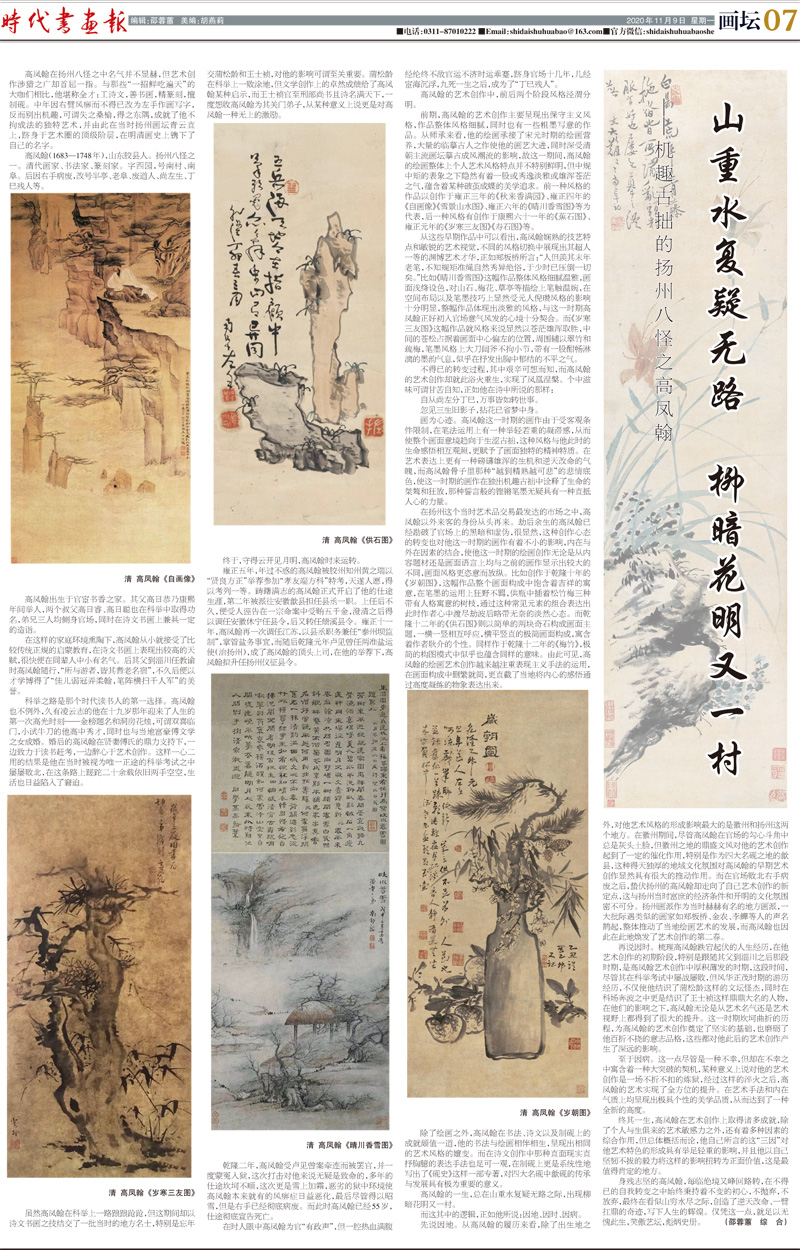 时代书画报
编辑:邵蓉蕙 美编:胡燕莉
2020年11月9日 星期一
画坛 07
■电话:0311-87010222 ■Email:shidaishuhuabao@163.com ■官方微信:shidaishuhuabaoshe
山重水复疑无路 柳暗花明又一村
桃趣古拙的扬州八怪之高凤翰
高凤翰在扬州八怪之中名气并不显赫,但艺术创
作涉猎之广却首屈一指。与那些“一招鲜吃遍天”的
大咖们相比,他堪称全才:工诗文,善书画,精篆刻,擅
制砚。中年因右臂风痹而不得已改为左手作画写字,
反而别出机趣,可谓失之桑榆,得之东隅,成就了他不
拘成法的独特艺术,并由此在当时扬州画坛青云直
上,跻身于艺术圈的顶级阶层,在明清画史上镌下了
自己的名字。
高凤翰(1683—1748年),山东胶县人。扬州八怪之
一。清代画家、书法家、篆刻家。字西园,号南村、南
阜。后因右手病废,改号半亭、老阜、废道人、尚左生、丁
巳残人等。
清 高凤翰《自画像》
高凤翰出生于官宦书香之家。其父高曰恭乃康熙
年间举人,两个叔父高曰睿、高曰聪也在科举中取得功
名,弟兄三人均侧身官场,同时在诗文书画上兼具一定
的造诣。
在这样的家庭环境熏陶下,高凤翰从小就接受了比
较传统正规的启蒙教育,在诗文书画上表现出较高的天
赋,很快便在同辈人中小有名气。后其父到淄川任教谕
时高凤翰随行,“所与游者,皆其耆老名宿”,不久后便以
才学博得了“佳儿弱冠弄柔翰,笔阵横扫千人军”的美
誉。
科举之路是那个时代读书人的第一选择。高凤翰
也不例外,久有凌云志的他在十九岁那年迎来了人生的
第一次高光时刻——金榜题名和洞房花烛,可谓双喜临
门,小试牛刀的他高中秀才,同时也与当地富豪傅文学
之女成婚。婚后的高凤翰在贤妻傅氏的鼎力支持下,一
边致力于读书赶考,一边醉心于艺术创作。这样一心二
用的结果是他在当时被视为唯一正途的科举考试之中
屡屡败北,在这条路上蹉跎二十余载依旧两手空空,生
活也日益陷入了窘迫。
清 高凤翰《岁寒三友图》
虽然高凤翰在科举上一路踉踉跄跄,但这期间却以
诗文书画之技结交了一批当时的地方名士,特别是忘年
交蒲松龄和王士祯,对他的影响可谓至关重要。蒲松龄
在科举上一败涂地,但文学创作上的卓然成绩给了高凤
翰某种启示,而王士祯官至刑部尚书且诗名满天下,一
度想收高凤翰为其关门弟子,从某种意义上说更是对高
凤翰一种无上的激励。
清 高凤翰《供石图》
终于,守得云开见月明,高凤翰时来运转。
雍正五年,年过不惑的高凤翰被胶州知州黄之瑞以
“贤良方正”举荐参加“孝友端方科”特考,天遂人愿,得
以考列一等。踌躇满志的高凤翰正式开启了他的仕途
生涯,第二年被派往安徽歙县担任县丞一职。上任后不
久,便受人诬告在一宗命案中受贿五千金,澄清之后得
以调任安徽休宁任县令,后又转任绩溪县令。雍正十一
年,高凤翰再一次调任江苏,以县丞职务兼任“泰州坝监
制”,掌管盐务事宜,而随后乾隆元年卢见曾任两淮盐运
使(治扬州),成了高凤翰的顶头上司,在他的举荐下,高
凤翰拟升任扬州仪征县令。
清 高凤翰《晴川香雪图》
乾隆二年,高凤翰受卢见曾案牵连而被罢官,并一
度蒙冤入狱,这次打击对他来说无疑是致命的,多年的
仕途坎坷不顺,这次更是雪上加霜,恶劣的狱中环境使
高凤翰本来就有的风痹症日益恶化,最后尽管得以昭
雪,但是右手已经彻底病废。而此时高凤翰已经55岁,
仕途彻底宣告死亡。
在时人眼中高凤翰为官“有政声”,但一腔热血满腹
经纶终不敌官运不济时运乖蹇,跻身官场十几年,几经
宦海沉浮,九死一生之后,成为了“丁巳残人”。
高凤翰的艺术创作中,前后两个阶段风格泾渭分
明。
前期,高凤翰的艺术创作主要呈现出保守主义风
格,作品整体风格细腻,同时也有一些粗墨写意的作
品。从师承来看,他的绘画承接了宋元时期的绘画营
养,大量的临摹古人之作使他的画艺大进,同时深受清
朝主流画坛摹古成风潮流的影响,故这一期间,高凤翰
的绘画整体上个人艺术风格特点并不特别鲜明,但中规
中矩的表象之下隐然有着一股或秀逸淡雅或雄浑苍茫
之气,蕴含着某种破茧成蝶的美学追求。前一种风格的
作品以创作于雍正三年的《秋来香满园》、雍正四年的
《自画像》《雪景山水图》、雍正六年的《晴川香雪图》等为
代表,后一种风格有创作于康熙六十一年的《菓石图》、
雍正元年的《岁寒三友图》《寿石图》等。
从这些早期作品中可以看出,高凤翰娴熟的技艺特
点和敏锐的艺术视觉,不同的风格切换中展现出其超人
一等的渊博艺术才华,正如郑板桥所言:“人但羡其末年
老笔,不知规矩准绳自然秀异绝俗,于少时已压倒一切
矣。”比如《晴川香雪图》这幅作品整体风格细腻温雅,画
面浅绛设色,对山石、梅花、草亭等描绘上笔触温婉,在
空间布局以及笔墨技巧上显然受元人倪瓒风格的影响
十分明显,整幅作品体现出淡雅的风格,与这一时期高
凤翰正好初入官场意气风发的心境十分契合。而《岁寒
三友图》这幅作品就风格来说显然以苍茫雄浑取胜,中
间的苍松占据着画面中心偏左的位置,周围辅以翠竹和
疏梅,笔墨风格上大刀阔斧不拘小节,带有一股酣畅淋
漓的墨韵气息,似乎在抒发出胸中郁结的不平之气。
不得已的转变过程,其中艰辛可想而知,而高凤翰
的艺术创作却就此浴火重生,实现了凤凰涅槃。个中滋
味可谓甘苦自知,正如他在诗中所说的那样:
自从尚左分丁巳,万事皆如转世事。
忽见三生旧影子,拈花已省梦中身。
画为心迹。高凤翰这一时期的画作由于受客观条
件限制,在笔法运用上有一种举轻若重的凝滞感,从而
使整个画面意境趋向于生涩古拙,这种风格与他此时的
生命感悟相互观照,更赋予了画面独特的精神特质。在
艺术表达上更有一种磅礴雄浑的生机和逆天改命的气
魄,而高凤翰骨子里那种“越到精熟越可悲”的悲情底
色,使这一时期的画作在独出机趣古拙中诠释了生命的
桀骜和狂放,那种誓言般的铿锵笔墨无疑具有一种直抵
人心的力量。
在扬州这个当时艺术品交易最发达的市场之中,高凤
翰以外来客的身份从头再来。劫后余生的高凤翰已
经勘破了官场上的黑暗和虚伪,很显然,这种创作心态
的转变也对他这一时期的画作有着不小的影响,内在与
外在因素的结合,使他这一时期的绘画创作无论是从内
容题材还是画面语言上均与之前的画作显示出较大的
不同,画面风格更恣意而放纵。比如创作于乾隆十年的
《岁朝图》,这幅作品整个画面构成中饱含着吉祥的寓
意,在笔墨的运用上狂野不羁,供瓶中插着松竹梅三种
带有人格寓意的树枝,通过这种常见元素的组合表达出
此时作者心中渡尽劫波后略带无奈的淡然心态。而乾
隆十二年的《供石图》则以简单的两块奇石构成画面主
题,一横一竖相互呼应,横平竖直的极简画面构成,寓含
着作者耿介的个性。同样作于乾隆十二年的《梅竹》,极
简的构图模式中似乎也蕴含同样的意味。由此可见,高
凤翰的绘画艺术创作越来越注重表现主义手法的运用,
在画面构成中删繁就简,更直截了当地将内心的感悟通
过高度凝练的物象表达出来。
清 高凤翰《岁朝图》
除了绘画之外,高凤翰在书法、诗文以及制砚上的
成就颇值一道,他的书法与绘画相伴相生,呈现出相同
的艺术风格的嬗变。而在诗文创作中那种直面现实直
抒胸臆的表达手法也是可一观,在制砚上更是系统性地
写出了《砚史》这样一部专著,对四大名砚中歙砚的传承
与发展具有极为重要的意义。
高凤翰的一生,总在山重水复疑无路之际,出现柳
暗花明又一村。
而这其中的逻辑,正如他所说:因地,因时,因病。
先说因地。从高凤翰的履历来看,除了出生地之
外,对他艺术风格的形成影响最大的是徽州和扬州这两
个地方。在徽州期间,尽管高凤翰在官场的勾心斗角中
总是灰头土脸,但徽州之地的鼎盛文风对他的艺术创作
起到了一定的催化作用,特别是作为四大名砚之地的歙
县,这种得天独厚的地域文化氛围对高凤翰的早期艺术
创作显然具有很大的推动作用。而在官场败北右手病
废之后,蛰伏扬州的高凤翰却走向了自己艺术创作的新
定点,这与扬州当时富庶的经济条件和开明的文化氛围
密不可分。扬州画派作为当时赫赫有名的地方画派,一
大批际遇类似的画家如郑板桥、金农、李鱓等人的声名
鹊起,整体推动了当地绘画艺术的发展,而高凤翰也因
此在此地焕发了艺术创作的第二春。
再说因时。梳理高凤翰跌宕起伏的人生经历,在他
艺术创作的初期阶段,特别是跟随其父到淄川之后那段
时期,是高凤翰艺术创作中厚积薄发的时期,这段时间,
尽管其在科举考试中屡战屡败,但风华正茂时期的游历
经历,不仅使他结识了蒲松龄这样的文坛怪杰,同时在
科场奔波之中更是结识了王士祯这样鼎鼎大名的人物,
在他们的影响之下,高凤翰无论是从艺术名气还是艺术
视野上都得到了很大的提升。这一时期坎坷曲折的历
程,为高凤翰的艺术创作奠定了坚实的基础,也磨砺了
他百折不挠的意志品格,这些都对他此后的艺术创作产
生了深远的影响。
至于因病。这一点尽管是一种不幸,但却在不幸之
中寓含着一种大突破的契机,某种意义上说对他的艺术
创作是一场不折不扣的炼狱,经过这样的淬火之后,高
凤翰的艺术实现了全方位的提升。在艺术手法和内在
气质上均呈现出极具个性的美学品质,从而达到了一种
全新的高度。
终其一生,高凤翰在艺术创作上取得诸多成就,除
了个人与生俱来的艺术敏感力之外,还有着多种因素的
综合作用,但总体概括而论,他自己所言的这“三因”对
他艺术特色的形成具有举足轻重的影响,并且他以自己
坚韧不拔的毅力将这样的影响扭转为正面价值,这是最
值得肯定的地方。
身残志坚的高凤翰,每临绝境又峰回路转,在不得
已的自我转变之中始终秉持着不变的初心,不抛弃,不
放弃,最终在看似山穷水尽之际,创造了逆天改命,一臂
扛鼎的奇迹,写下人生的辉煌。仅凭这一点,就足以无
愧此生,笑傲艺坛,彪炳史册。 (邵蓉蕙 综 合)